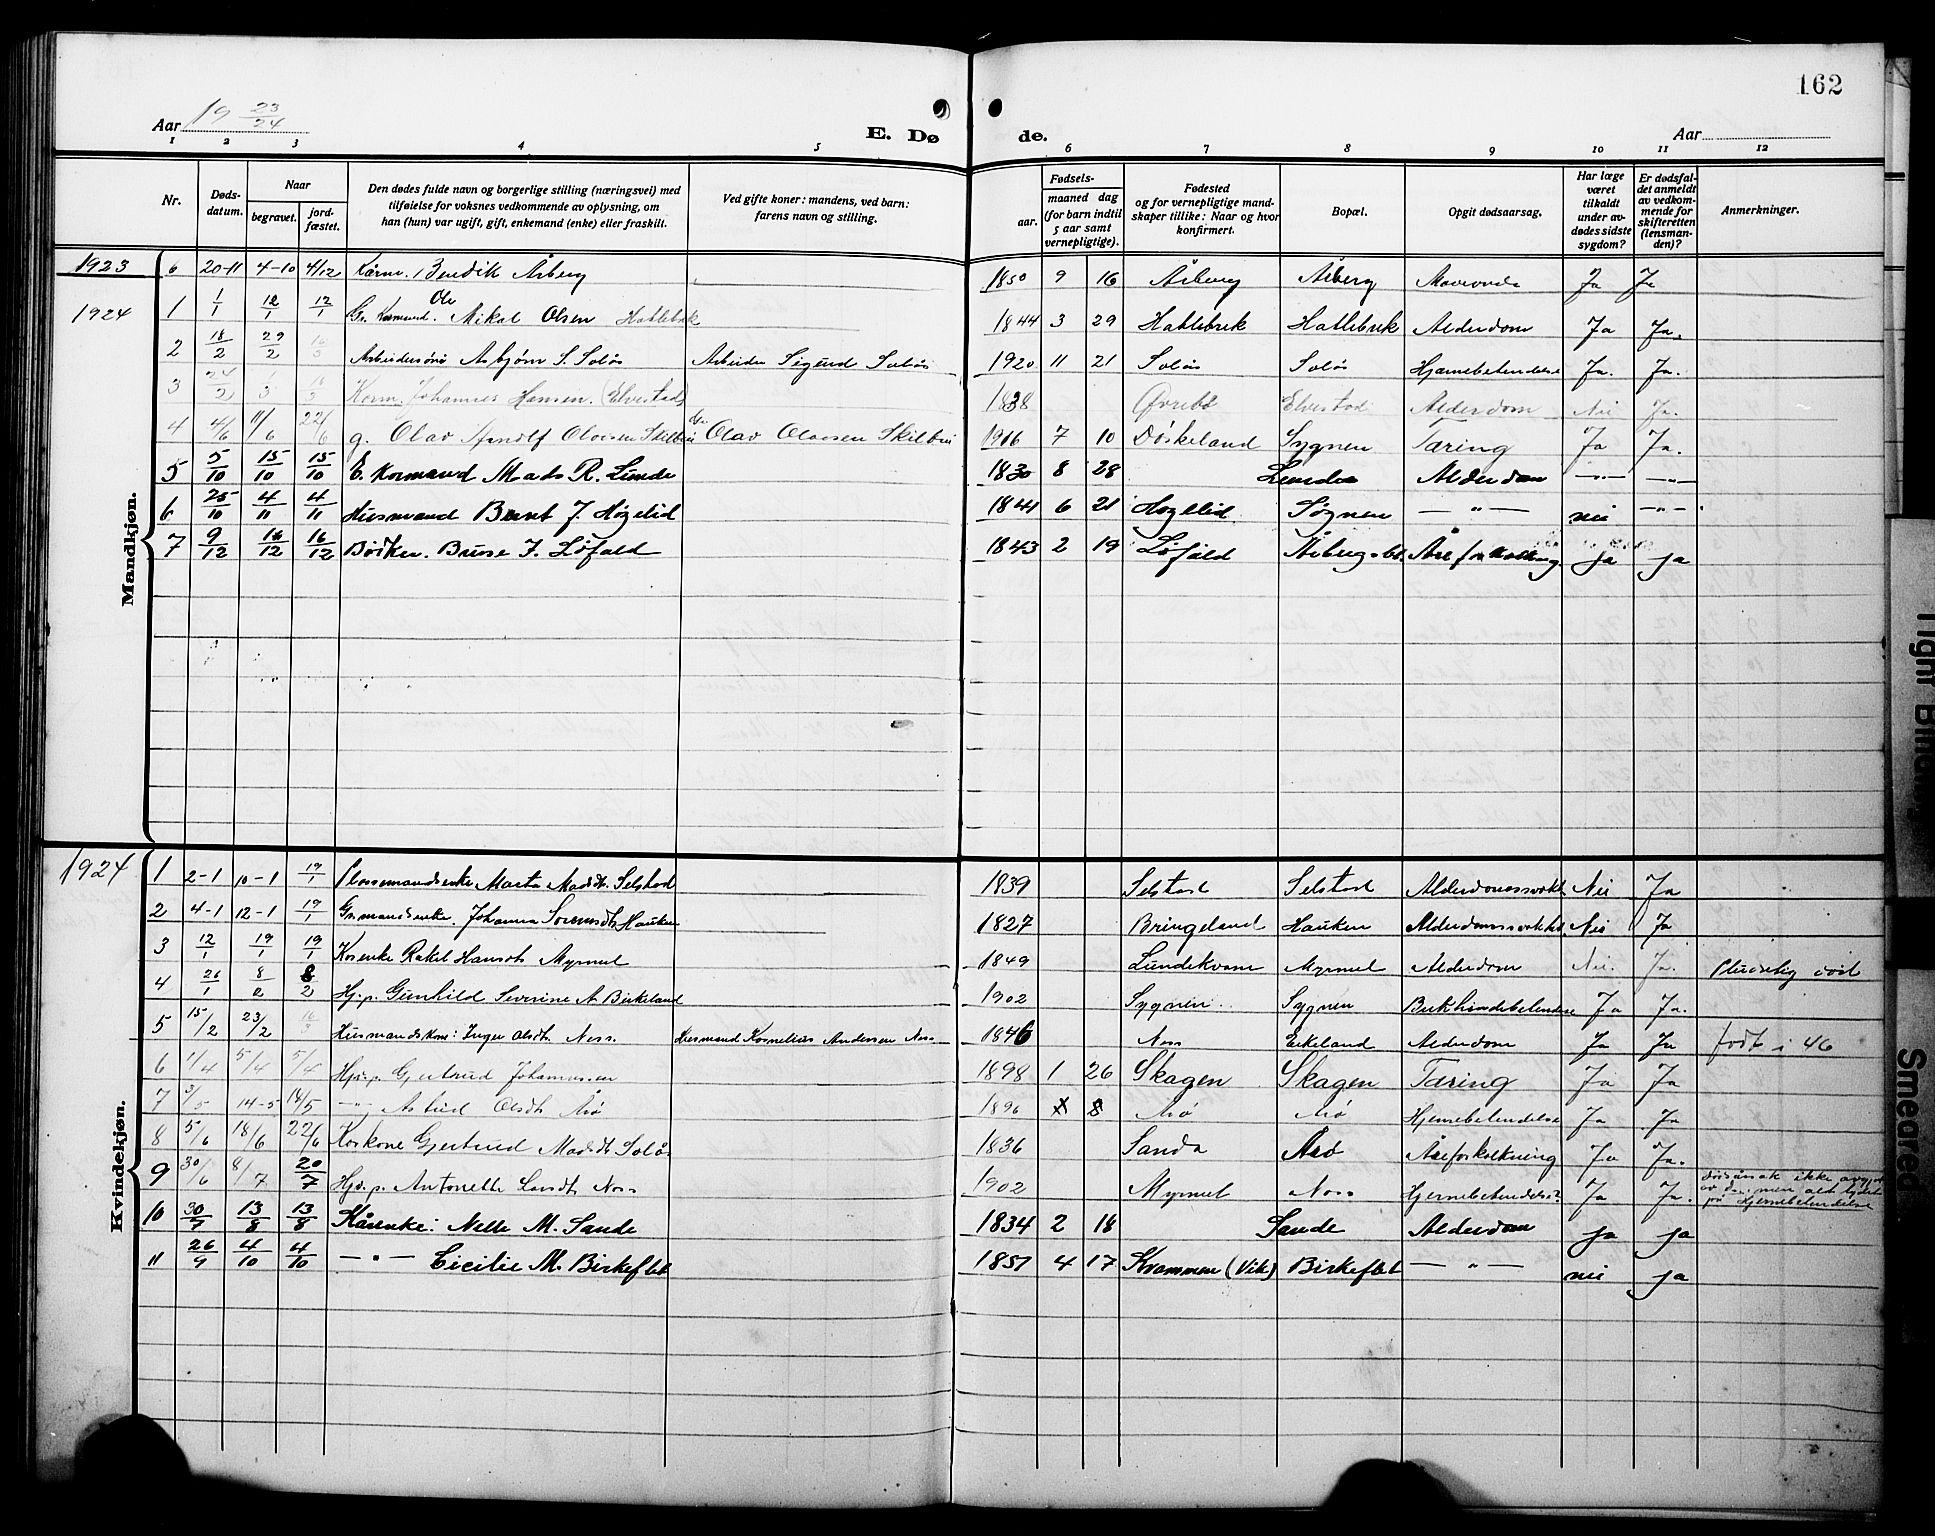 162
Aar 19 23/24
E. Døde.
Aar
1 2 3 4 5 6 7 8 9 10 11 12
Nr.
Døds-datum.
Naar
begravet.
jord-fæstet.
Den dødes fulde navn og borgerlige stilling (næringsvei) med
tilføielse for voksnes vedkommende av oplysning, om
han (hun) var ugift, gift, enkemand (enke) eller fraskilt.
Ved gifte koner: mandens, ved barn:
farens navn og stilling.
Fødsels-
aar.
maaned dag
(for barn indtil
5 aar samt
vernepligtige).
Fødested
og for vernepligtige mand-
skaper tillike: Naar og hvor
konfirmert.
Bopæl.
Opgit dødsaarsag.
Har læge
været
tilkaldt
under av-
dødes sidste
sygdom?
Er dødsfal-
det anmeldt
av vedkom-
mende for
skifteretten
(lensman-
den)?
Anmerkninger.
Mandkjøn.
1923 6 20-11 4-10 4/12 Kårm. Bendik Åsberg 1850 9 16 Åsberg Åsberg Ja Ja
1924 1 1/1 12/1 12/1 Ole
Mikal Olsen Hatlebrek 1844 3 29 Hatlebrek Hatlebrek Alderdom Ja Ja.
2 18/2 29/2 16/3 Arbeidersøn Asbjørn S. Solås Arbeider Sigurd Solås 1920 11 21 Solås Solås Hjernebetendelse Ja. Ja.
3 24/2 1/3 16/3 Korm. Johannes Hansen. (Elvestad) 1838 Øvrebø Elvestad Alderdom Nei Ja.
4 4/6 11/6 22/6 g. Olav Arnolf Olavsen Skilbrei Olav Olavsen Skilbrei 1916 7 10 Døskeland Sygnen Tæring Ja Ja.
5 5/10 15/10 15/10 E. Kormand Mads R. Lunde 1830 8 28 Lunde Alderdom —"— —"—
6 25/10 4/11 4/11 Husmand Bernt J. Høgelid 1841 6 21 Høgelid Sognen —"— nei —"—
7 9/12 16/12 16/12 Bødker. Brure J. Løfald 1843 2 19 Løfald Åreforkalkning ja ja
Kvindekjøn.
1924 1 2-1 10-1 19/1 Plassmandsenke Marta Madsdt. Selstad 1839 Selstad Selstad Nei Ja
2 4-1 12-1 19/1 Grmandsenke. Johanna Hauken 1827 Bringeland Hauken Nei Ja
3 12/1 19/1 19/1 Kårenke Rakel Hansdt. Myrmel 1849 Lundekvam Myrmel Alderdom Nei. Ja. Pludselig død
4 26/1 8/2 8/2 Hj.p. Gunhild Severine A. Birkeland 1902 Sygnen Sygnen Bukhindebetendelse Ja Ja.
5 15/2 23/2 16/3 Husmandskone: Inger Olsdt. Ness. Husmand Kornelius Andersen Ness 1846 Ness Eikeland Alderdom Ja Ja født i 46
6 1/4 5/4 5/4 Hj.p. Gjertrud Johannessen 1898 1 26 Skagen Skagen Tæring Ja Ja
7 3/5 14-5 18/5 —"— Astrid Olsdt. Årø 1896 8 Årø Årø Hjernebetendelse Ja Ja
8 5/6 18/6 22/6 Korkone Gjertrud Madsdt. Solås 1836 Sanda Årø Åreforkalkning Ja Ja.
9 30/6 8/7 20/7 Hj.p. Antonette Ness 1902 Myrmel Ness Hjernebetendelse Ja Ja. dødsårsak ikke
men alt tyder
på Hjernebetendelse
10 30/7 13/8 13/8 Kårenke: Nelle M. Sande 1834 2 18 Sande Alderdom ja ja
11 26/9 4/10 4/10 —"— Cicilie M. Birkeflet 1851 4 17 Kvammen (Vik) Birkeflet —"— nei ja
Tight Binding
Smeared